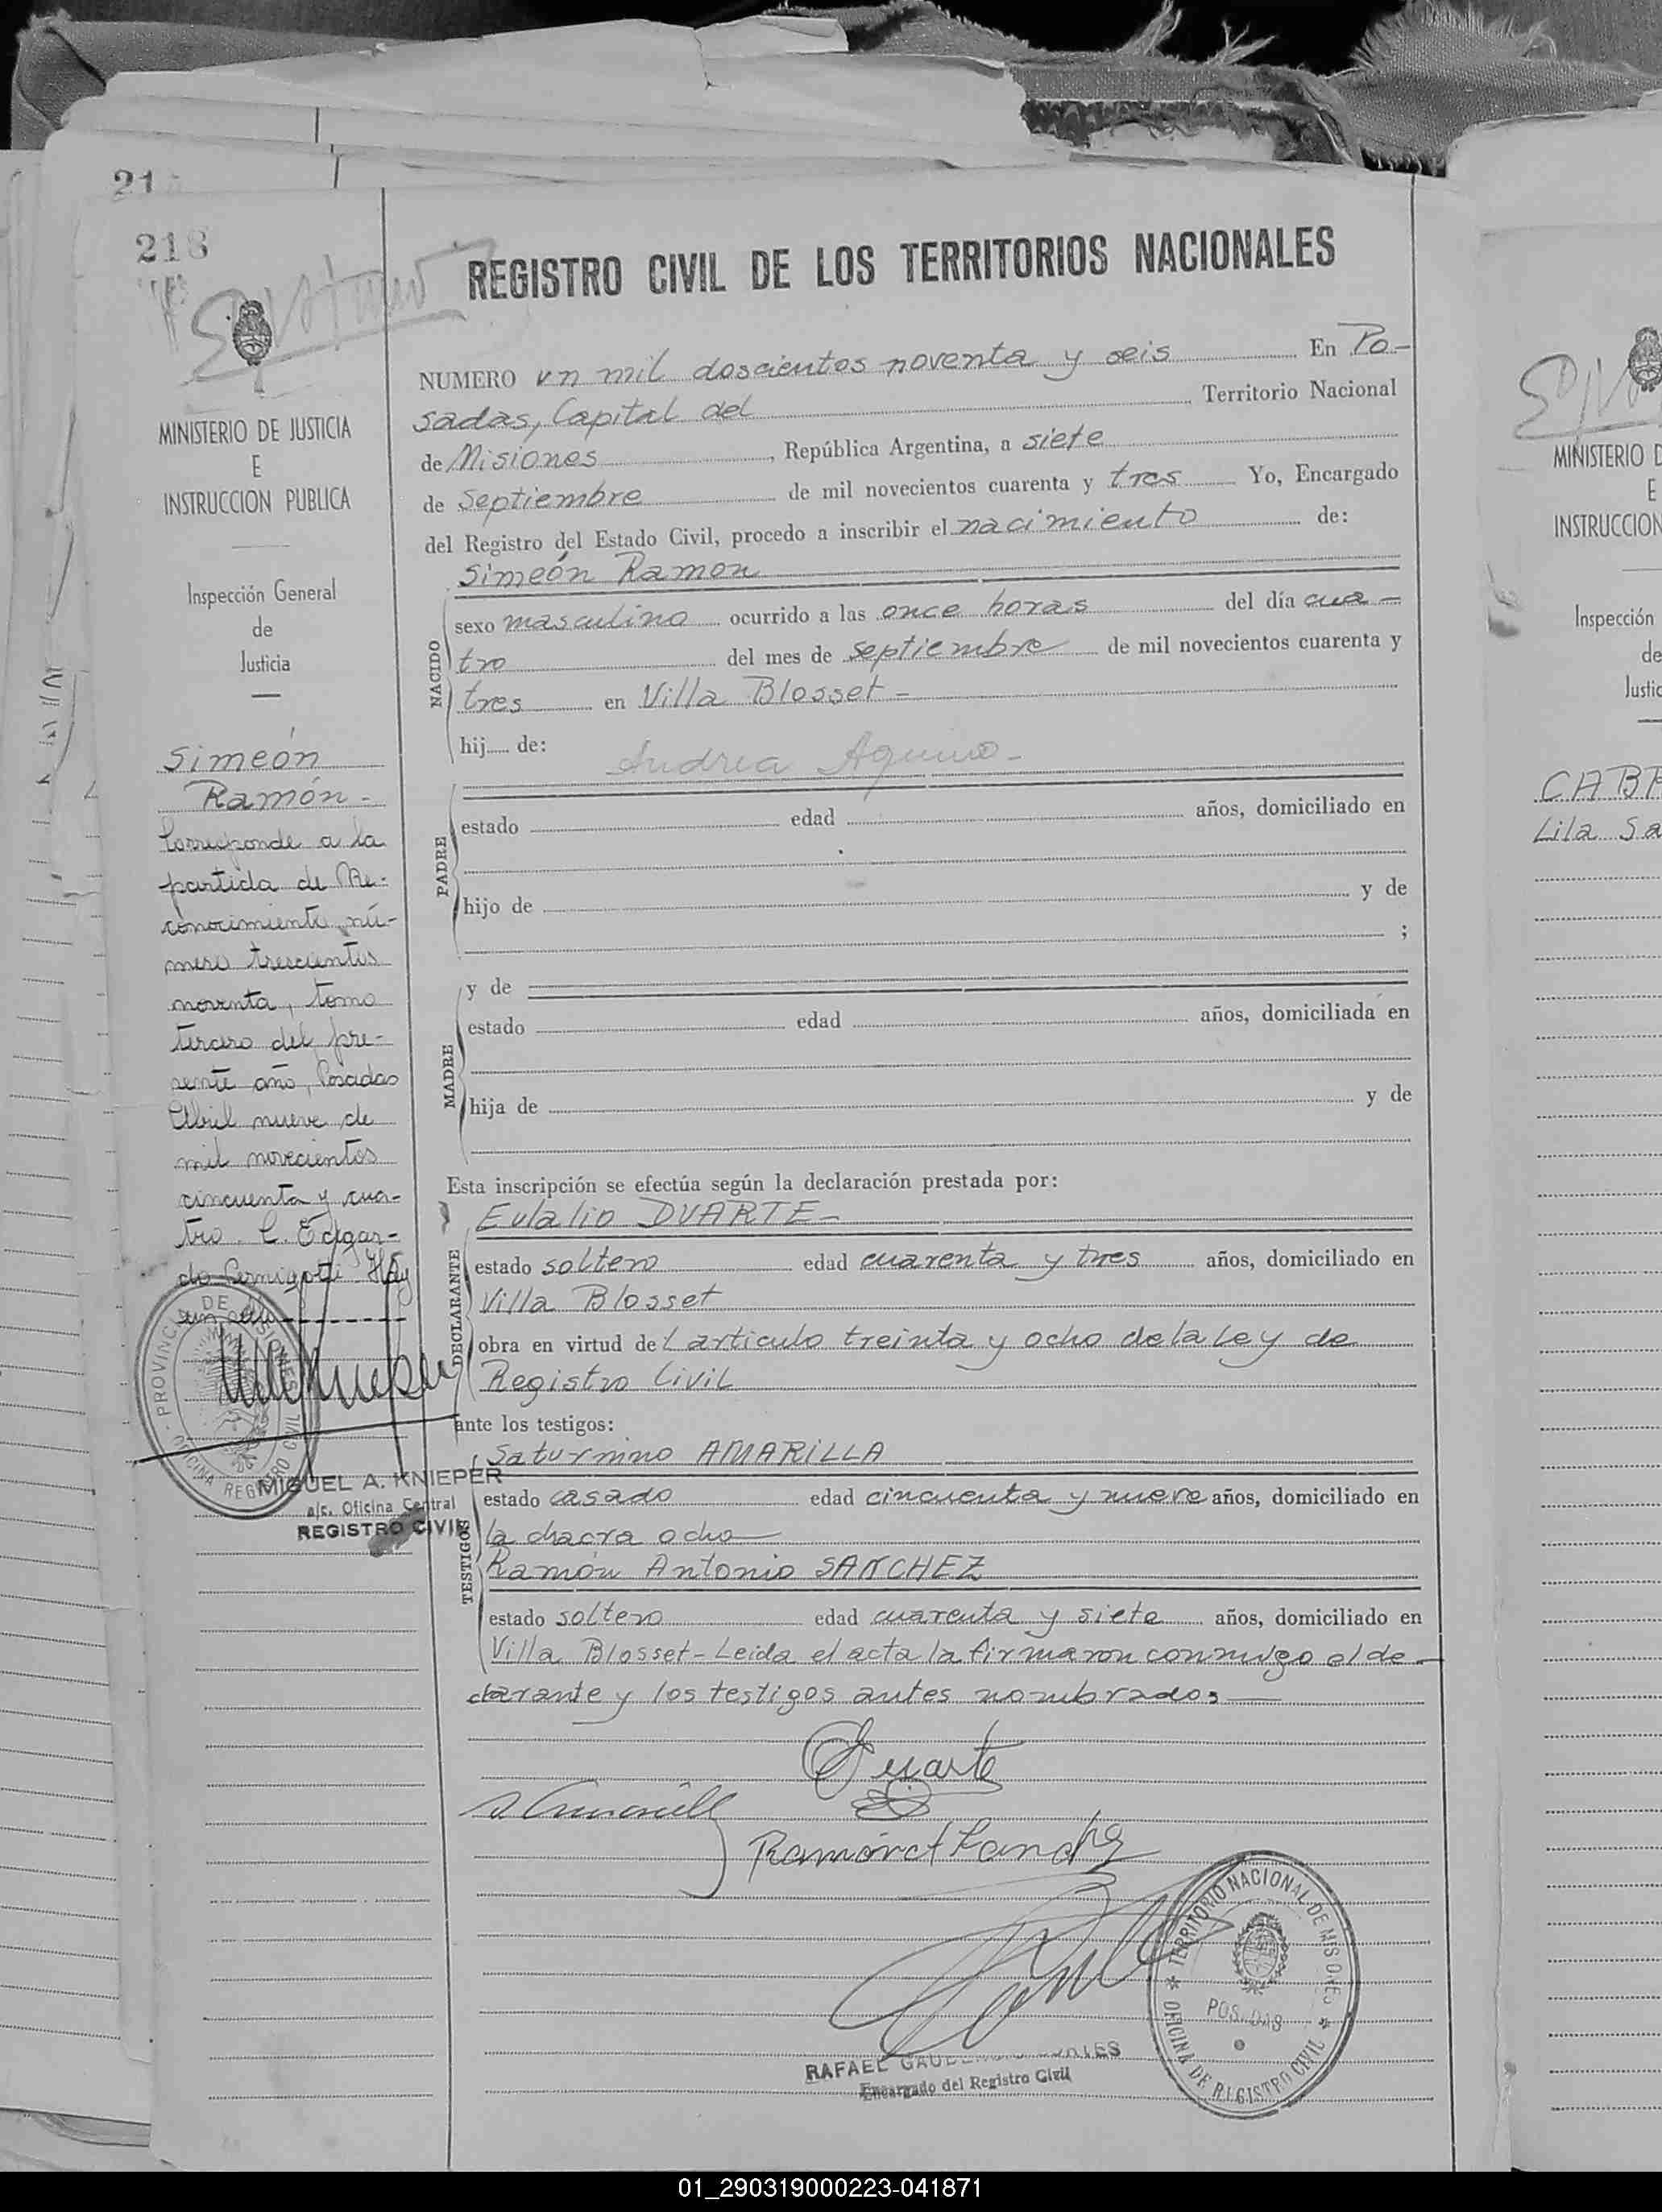 21
218
REGISTRO CIVIL DE LOS TERRITORIOS NACIONALES
MINISTERIO DE JUSTICIA
E
INSTRUCCION PUBLICA
Inspección General
de
Justicia
Simeón
Ramón-
Corresponde a la
partida de Re-
conocimiento nú-
mero trescientos
noventa, tomo
tercero del pre-
sente año, Posadas
Abril nueve de
mil novecientos
cincuenta y cua-
tro. C. Edgar-
do Hay
un
PROVINCIA DE MISIONES
OFICINA REGISTRO CIVIL
MIGUEL A. KNIEPER
a/c. Oficina Central
REGISTRO CIVIL
NUMERO un mil doscientos noventa y seis En Po-
sadas, Capital del Territorio Nacional
de Misiones, República Argentina, a siete
de Septiembre de mil novecientos cuarenta y tres Yo, Encargado
del Registro del Estado Civil, procedo a inscribir el nacimiento de:
Simeón Ramón
NACIDO
sexo masculino ocurrido a las once horas del día cua-
tro del mes de septiembre de mil novecientos cuarenta y
tres en Villa Blosset-
hij de:
Andrea Aquino-
PADRE
estado edad años, domiciliado en
hijo de y de
;
y de
MADRE
estado edad años, domiciliada en
hija de y de
Esta inscripción se efectúa según la declaración prestada por:
Eulalio DUARTE-
DECLARANTE
estado soltero edad cuarenta y tres años, domiciliado en
Villa Blosset
obra en virtud del articulo treinta y ocho de la Ley de
Registro Civil
ante los testigos:
Saturnino AMARILLA
TESTIGOS
estado casado edad cincuenta y nueve años, domiciliado en
la chacra ocho
Ramón Antonio SANCHEZ
estado soltero edad cuarenta y siete años, domiciliado en
Villa Blosset-Leida el acta la firmaron conmigo el de-
clarante y los testigos antes nombrados
Duarte
RAFAEL
Encargado del Registro Civil
TERRITORIO NACIONAL DE MISIONES
POSADAS
OFICINA DE REGISTRO CIVIL
MINISTERIO D
E
INSTRUCCION
Inspección
de
Justic
Lila Sa
01_290319000223-041871